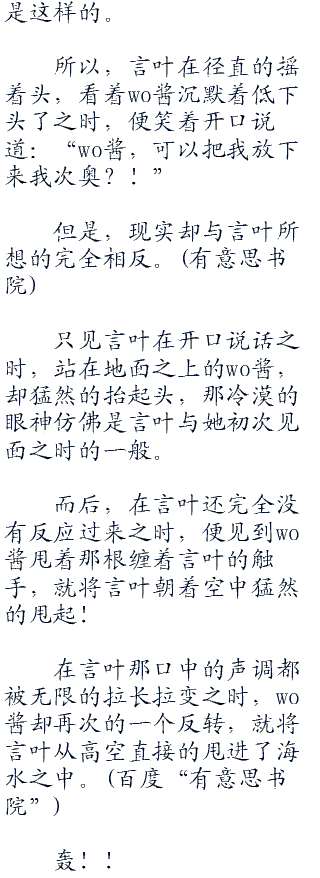 是这样的。
所以，言叶在径直的摇
着头，看着wo酱沉默着低下
头了之时，便笑着开口说
道：“wo酱，可以把我放下
来我次奥？！”
但是，现实却与言叶所
想的完全相反。(有意思书
院)
只见言叶在开口说话之
时，站在地面之上的wo酱，
却猛然的抬起头，那冷漠的
眼神仿佛是言叶与她初次见
面之时的一般。
而后，在言叶还完全没
有反应过来之时，便见到wo
酱甩着那根缠着言叶的触
手，就将言叶朝着空中猛然
的甩起！
在言叶那口中的声调都
被无限的拉长拉变之时，wo
酱却再次的一个反转，就将
言叶从高空直接的甩进了海
水之中。(百度“有意思书
院”)
轰！！